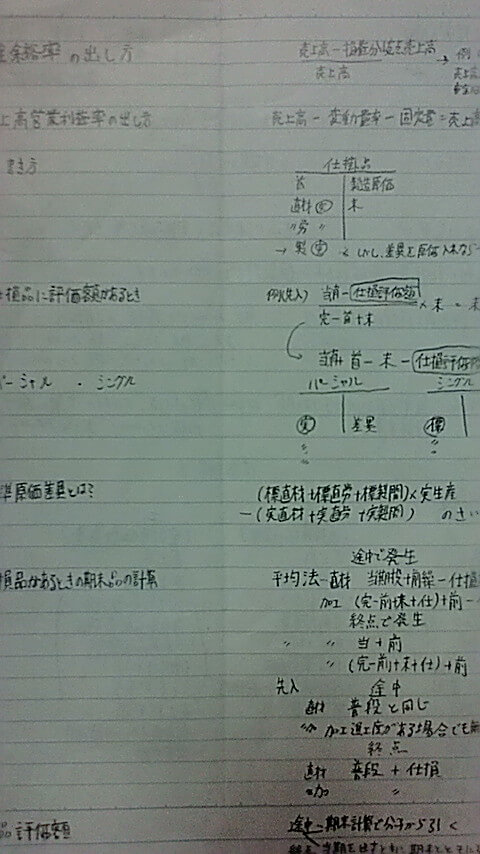 余裕率の出し方
売上高－損益分岐点売上高 → 例
売上高
上高営業利益率の出し方
売上高－変動費率－固定費＝売上高
書き方
仕掛品
首 製造原価
直材実 末
〃労 〃
→製実 しかし、差異を原価
損品に評価額があるとき
例(先入) 当有－仕損評価額 ×末＝末
完－首＋末
当有＋首－末－仕損評価
パーシャル・シングル
パーシャル シングル
実 差異 標
〃 〃
〃
準原価差異とは？
(標直材＋標直労＋標製間)×実生産
－(実直材＋実直労＋実製間) のさい
途中で発生
損品があるときの期末の計算
平均法－直材 当期投＋前繰－仕損
加工 (完－前＋末＋仕)＋前－
終点で発生
〃 〃 当＋前
〃 (完－前＋末＋仕)＋前
先入 途中
直材 普段と同じ
〃加 加工進工度がある場合でも無
終点
直材 普段＋仕損
〃加 〃
品評価額
途中－期末計算で分子から引く